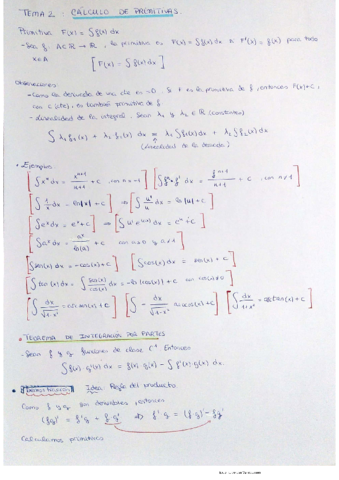 TEMA 2 : CÁLCULO DE PRIMITIVAS.
Primitiva F(x) = ∫ f(x) dx
- Sea f: A⊂ℝ → ℝ, la primitiva es F(x) = ∫ f(x) dx si F'(x) = f(x) para todo
x∈A [F(x) = ∫ f(x) dx]
Observaciones:
- Como la derivada de una cte es =0. Si F es la primitiva de f, entonces F(x)+C,
con C (cte), es también primitiva de f
- Linealidad de la integral. Sean λ₁ y λ₂ ∈ ℝ (constantes)
∫ λ₁ f₁(x) + λ₂ f₂(x) dx = λ₁ ∫ f₁(x) dx + λ₂ ∫ f₂(x) dx
(linealidad de la derivada)
• Ejemplos
[∫ xⁿ dx = xⁿ⁺¹/n+1 + C con n≠-1] [∫ fⁿ · f' dx = fⁿ⁺¹/n+1 + C, con n≠1]
[∫ 1/x dx = ln|x| + C] ⇒ [∫ u'/u dx = ln|u| + C]
[∫ eˣ dx = eˣ + C] ⇒
[∫ aˣ dx = + C con a>0 y a≠1]
[∫ sen(x) dx = -cos(x) + C] [∫ cos(x) dx = sen(x) + C]
[∫ tan(x) dx = ∫ sen(x)/cos(x) dx = -ln|cos(x)| + C con cos(x)≠0]
[∫ dx/√1-x² = arcsen(x) + C] [∫ - dx/√1-x² = arccos(x) + C] [∫ dx/1+x² = arctan(x) + C]
• TEOREMA DE INTEGRACIÓN POR PARTES
- Sean f y g funciones de clase C¹. Entonces
∫ f(x) · g'(x) dx = f(x) · g(x) - ∫ f'(x) · g(x) dx.
• Idea: Regla del producto
Como f y g son derivables, entonces
(f·g)' = f'·g + f·g' ⇒ f'·g = (f·g)' - f·g'
Calculamos primitivas